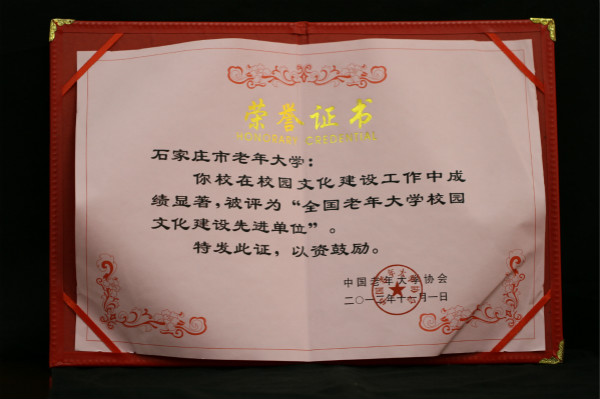 荣誉证书
HONORARY CREDENTIAL
石家庄市老年大学：
你校在校园文化建设工作中成
绩显著，被评为“全国老年大学校园
文化建设先进单位”。
特发此证，以资鼓励。
中国老年大学协会
二〇一 年十 月一日